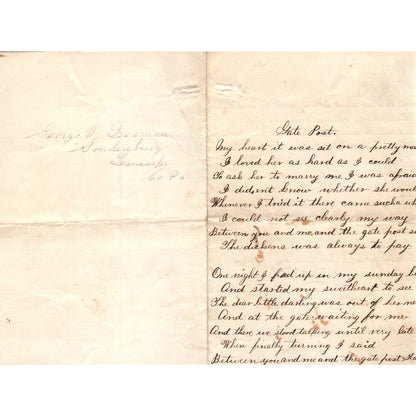 George W. Leaman
Soudersburg
Lancaster
Co Pa
Gate Post.
My heart it was set on a pretty
I loved her as hard as I could
To ask her to marry me I was afraid
I did,ent know whether she
Whenever I tried it there came such a
I could not see clearly my way
Between you and me and the gate post
The dickens was always to pay
One night I fixed up in my sunday
And started my sweetheart to see
The dear little darling was out of her
And at the gate waiting for me
And there we stood talking until very late
When finally turning I said
Between you and me and the gate post